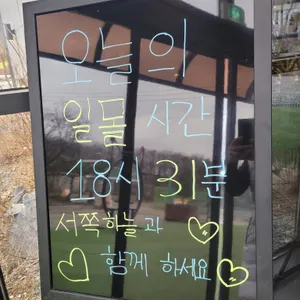 오늘의
일몰 시간
18시 31분
서쪽하늘과
함께 하세요